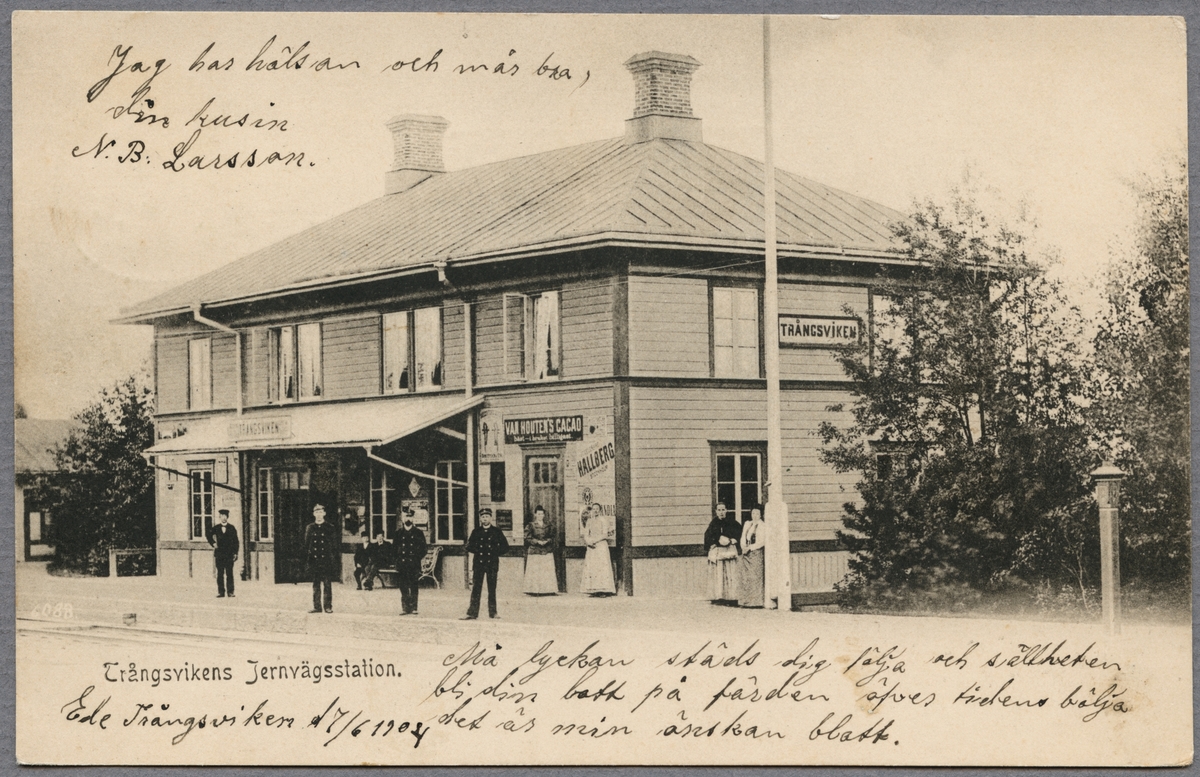 Jag har hälsan och mår bra,
din kusin
N. B. Larsson.
TRÅNGSVIKEN
TRÅNGSVIKEN
VAN HOUTEN'S CACAO
HALLBERG
Trångsvikens Jernvägsstation.
Må lyckan städs dig följa och sällheten
bli din lott på färden öfver tidens bölja
det är min önskan blott.
Ede Trångsviken d7/6 1904